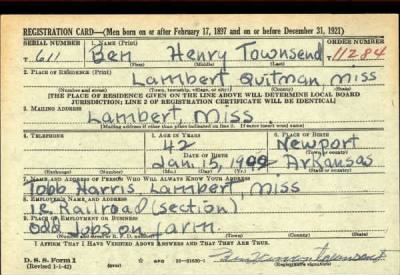 REGISTRATION CARD—(Men born on or after February 17, 1897 and on or before December 31, 1921)
SERIAL NUMBER 1. NAME (Print) ORDER NUMBER
T 611 Ben Henry Townsend 11284
2. PLACE OF RESIDENCE (Print)
Lambert Quitman, miss
(Number and street) (Town, township, village, or city) (County) (State)
[THE PLACE OF RESIDENCE GIVEN ON THE LINE ABOVE WILL DETERMINE LOCAL BOARD
JURISDICTION; LINE 2 OF REGISTRATION CERTIFICATE WILL BE IDENTICAL]
3. MAILING ADDRESS
Lambert, Miss.
[Mailing address if other than place indicated on line 2. If same insert word same]
4. TELEPHONE 5. AGE IN YEARS 6. PLACE OF BIRTH
42 Newport
DATE OF BIRTH (Town or county)
Jan. 15, Arkansas
(Exchange) (Number) (Mo.) (Day) (Yr.) (State or country)
7. NAME AND ADDRESS OF PERSON WHO WILL ALWAYS KNOW YOUR ADDRESS
Tobb Harris, Lambert, Miss
8. EMPLOYER'S NAME AND ADDRESS
Railroad (section)
9. PLACE OF EMPLOYMENT OR BUSINESS
odd jobs on farm.
(Number and street or R. F. D. number) (Town) (County) (State)
I AFFIRM THAT I HAVE VERIFIED ABOVE ANSWERS AND THAT THEY ARE TRUE.
D. S. S. Form 1
(Revised 1-1-42) (over) 16—21630-1 Townsend
(Registrant's signature)